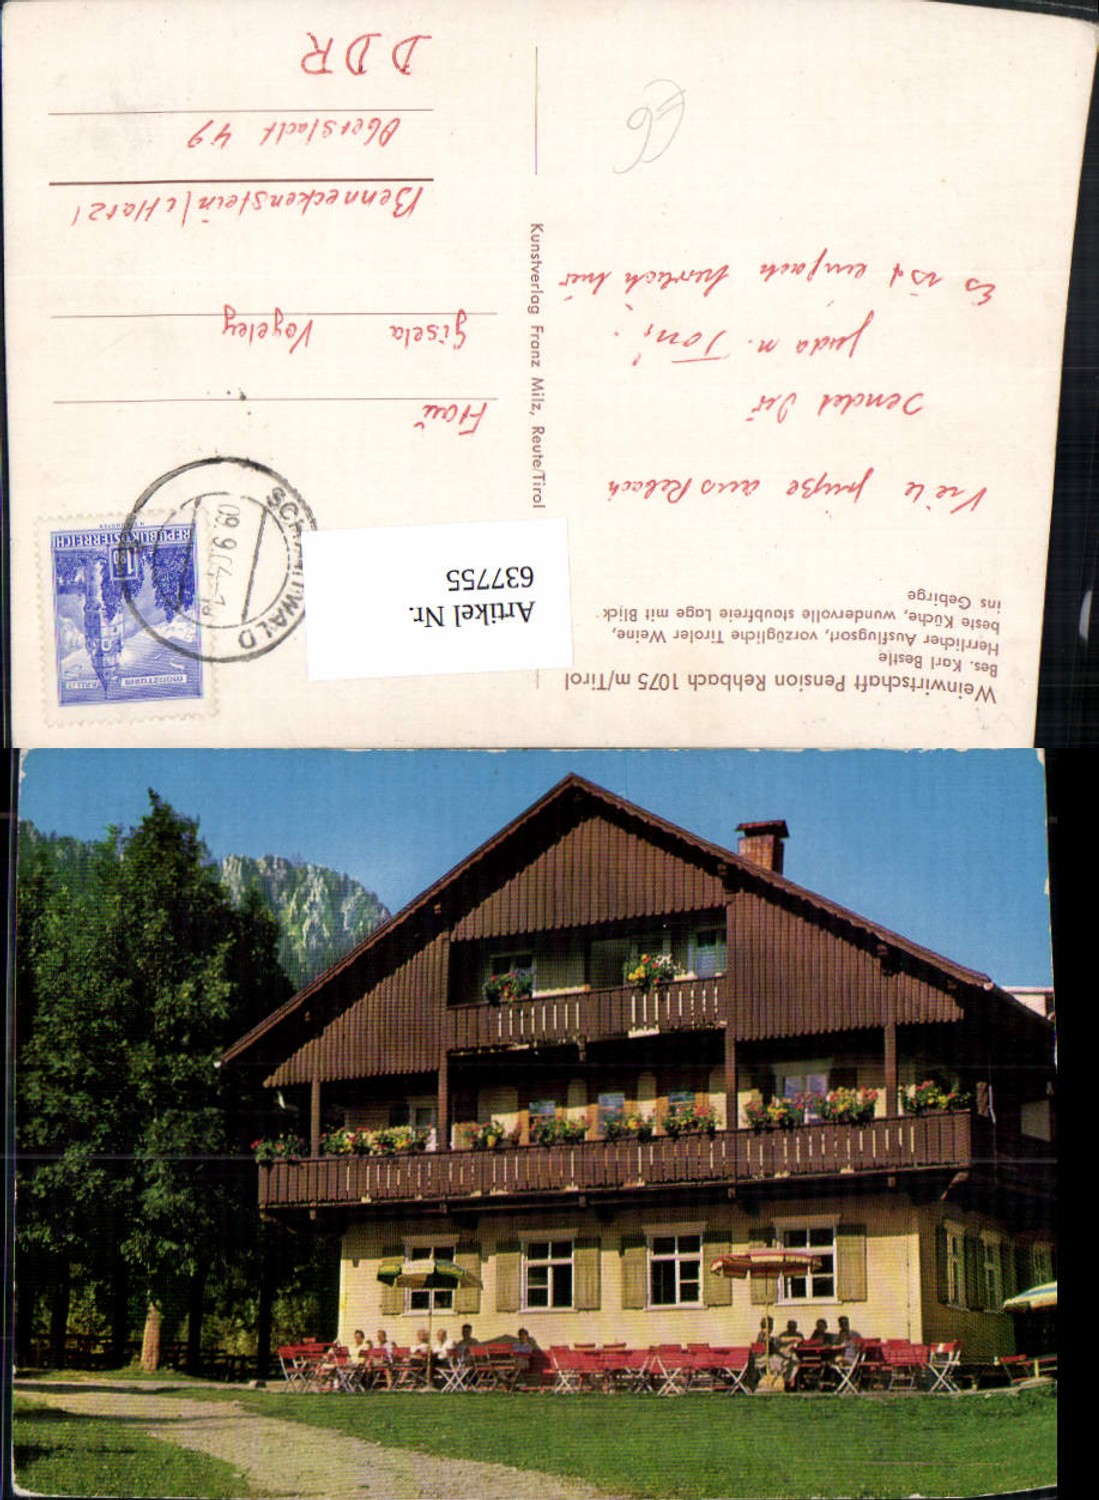 Weinwirtschaft Pension Rehbach 1075 m/Tirol
Bes. Karl Bestle
Herrlicher Ausflugsort, vorzügliche Tiroler Weine,
beste Küche, wundervolle staubfreie Lage mit Blick
ins Gebirge
Viele grüße aus Rebach
sendet Dir
Juda n. Toni.
Es ist einfach herrlich hier
Kunstverlag Franz Milz, Reute/Tirol
Artikel Nr.
637755
MÜNZTURM
HALL I. T.
1.80
REPUBLIK ÖSTERREICH
SCHATTWALD
09.9.64-1
Frau
Gisela Vogeley
Benneckenstein/i Harz!
Oberstadt 49
DDR
€6